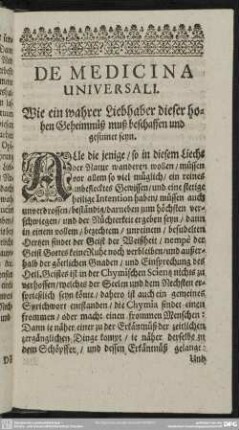 DE MEDICINA
UNIVERSALI.
Wie ein wahrer Liebhaber dieser ho-
hen Geheimnüß muß beschaffen und
gesinnet seyn.
ALle die jenige / so in diesem Liecht
der Natur wanderen wollen / müssen
vor allem so viel müglich / ein reines
unbeflecktes Gewissen / und eine stetige
heilige Intention haben / müssen auch
unverdrossen / beständig / darneben zum höchsten ver-
schwiegen / und der Nüchterkeit ergeben seyn / dann
in einem vollen / bezechtem / unreinem / besudeltem
Hertzen findet der Geist der Weißheit / nempe der
Geist Gottes keine Ruhe noch verbleiben / und ausser-
halb der götlichen Gnaden / und Einsprechung des
Heil. Geistes ist in der Chymischen Scientz nichts zu
verhoffen / welches der Seelen und dem Nechsten er-
sprießlich seyn könte / dahero ist auch ein gemeines
Sprichwort entstanden / die Chymia findet einen
frommen / oder macht einen frommen Menschen:
Dann je näher einer zu der Erkäntnüß der zeitlichen
zergänglichen Dinge kompt / je näher derselbe zu
dem Schöpffer / und dessen Erkäntnüß gelangt:
Und